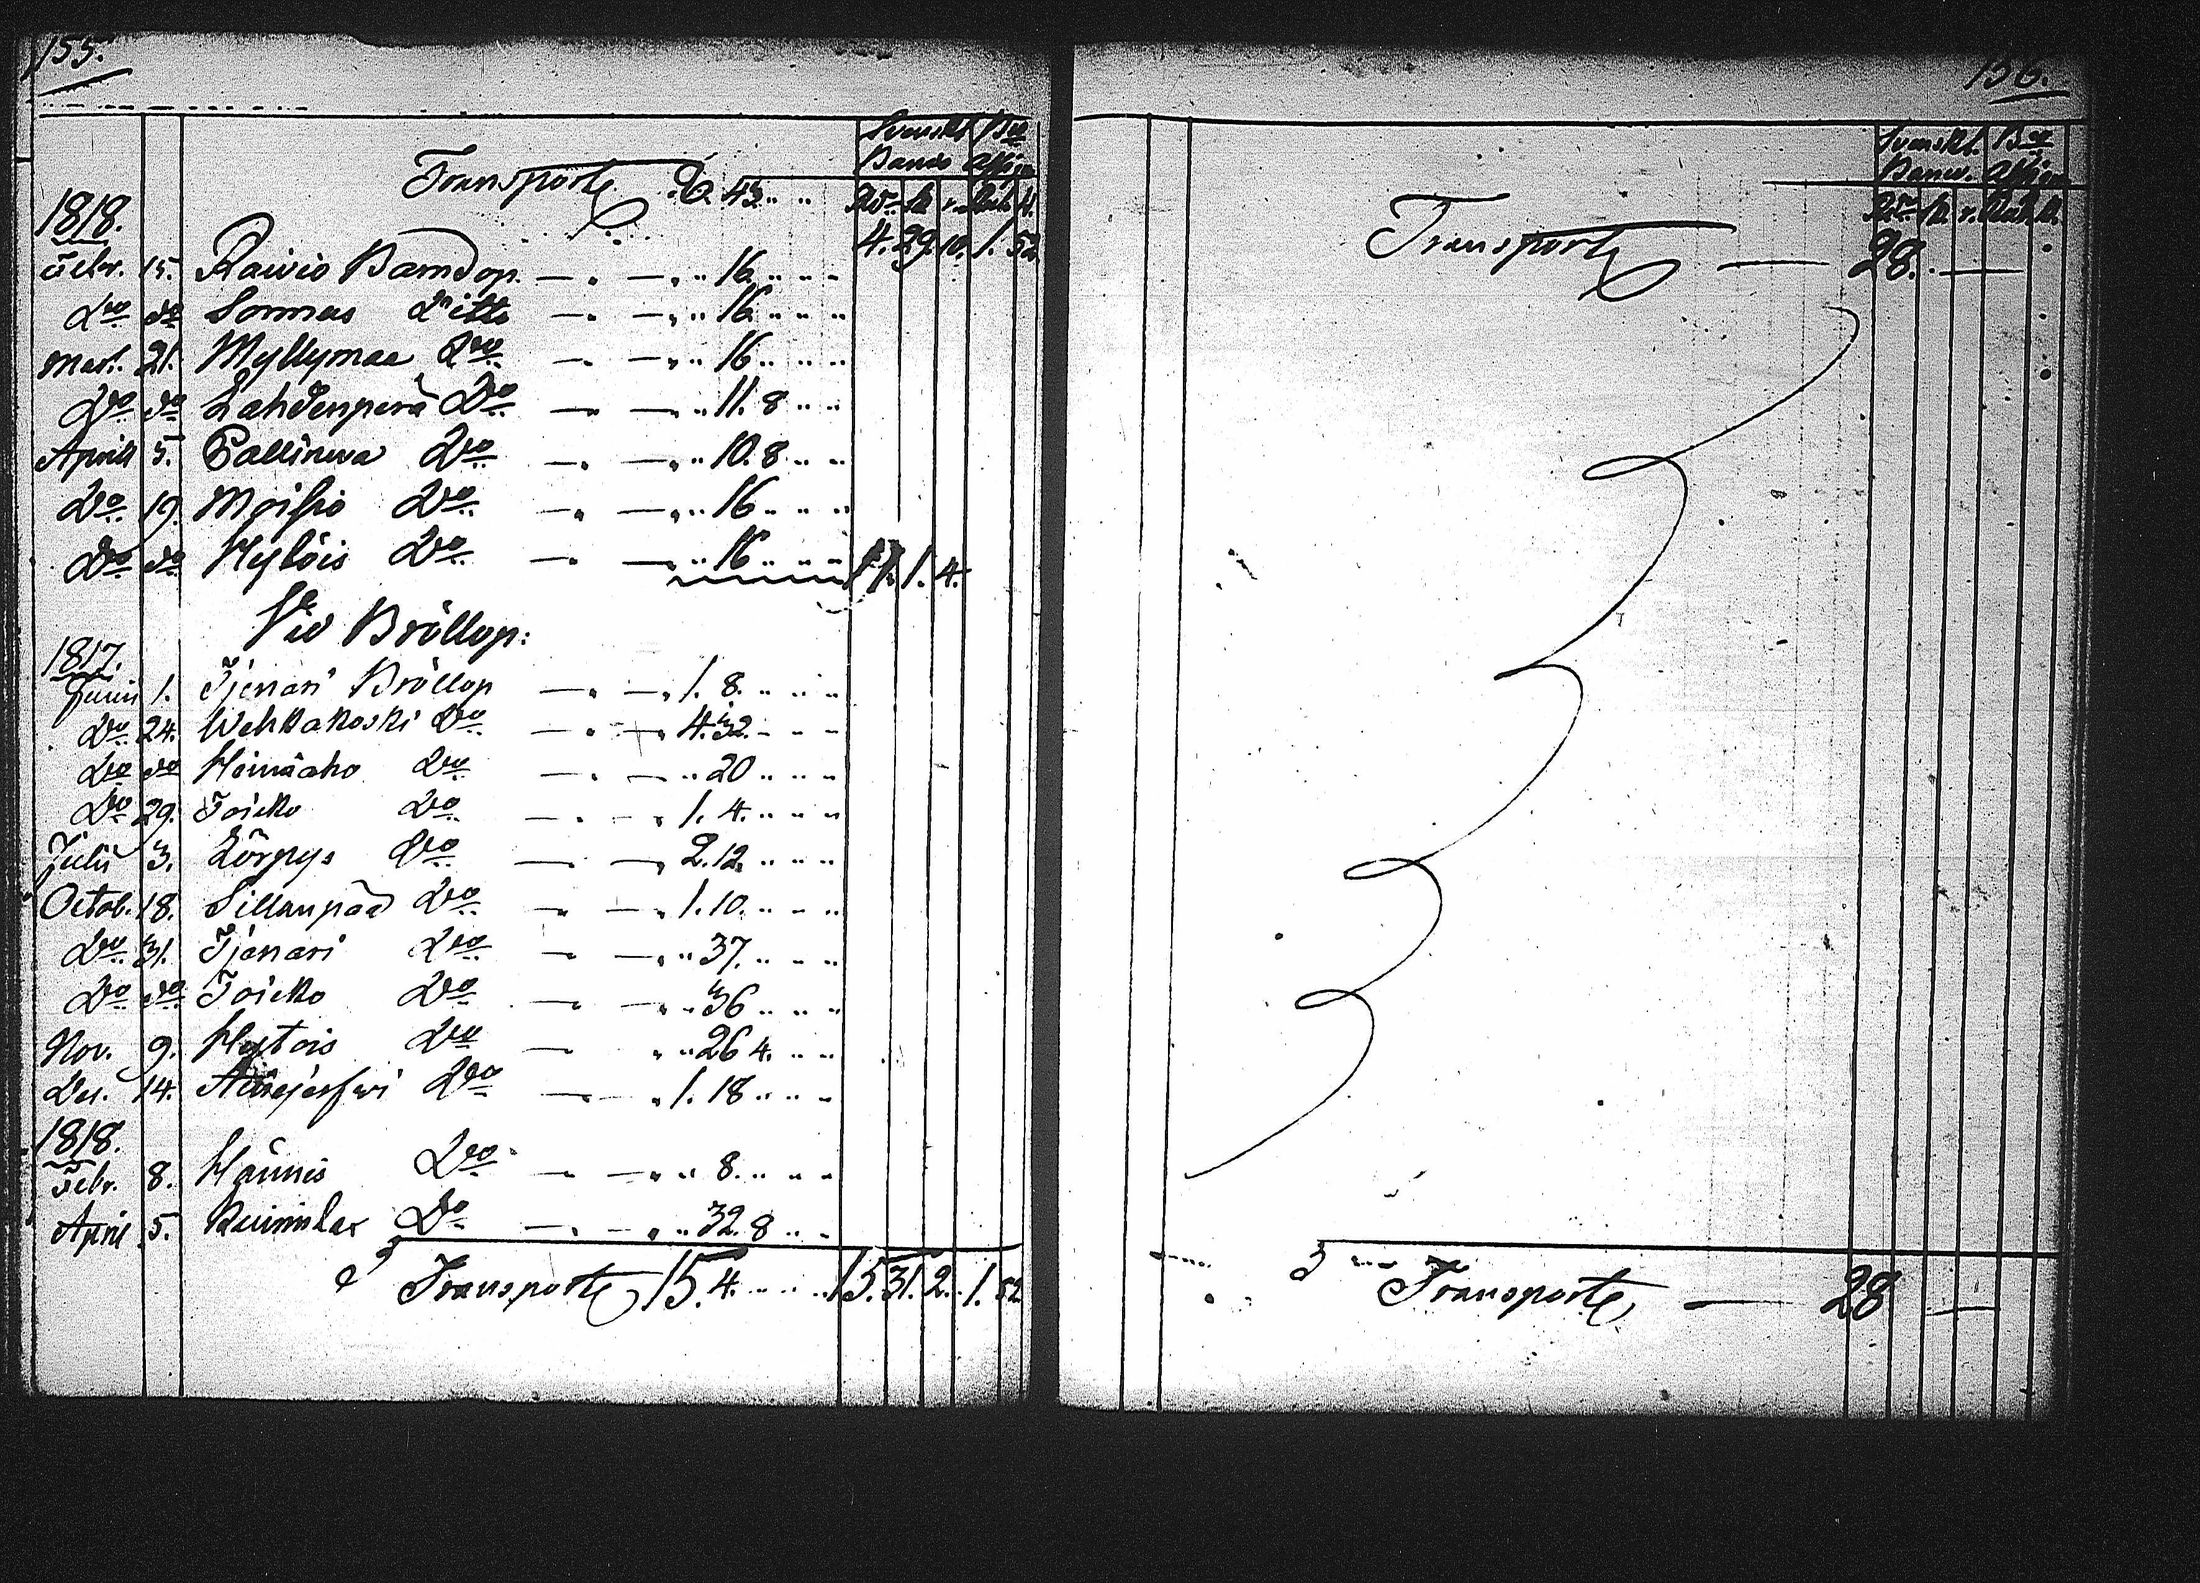 155.
Svenskt B:co
Banco Assign
Transport 8. 43. R:d sk r. Rub. k.
1818. 4. 29. 10. 1. 52
Febr. 15. Raivio Barndop. — 16.
D:o d:o Sormus Ditto — 16.
Mart. 21. Myllymaa D:o — 16
D:o d:o Lahdenperä D:o — 11. 8
Aprill 5. Pallineva D:o — 10. 8
D:o 19. Moisio D:o — 16
D:o d:o Hylöis D:o — 16 1. 4.
Vid Bröllop:
1817.
Junii 1. Tjenari Bröllop — 1. 8.
D:o 24. Wehkakoski D:o — 4. 32.
D:o d:o Heinäaho D:o — 20
D:o 29. Toicko D:o — 1. 4.
Julii 3. Lörpys D:o — 2. 12.
Octob. 18. Sillanpää D:o — 1. 10.
D:o 31. Tjenari D:o — 37.
D:o d:o Toicko D:o — 36
Nov. 9. D:o — 26 4.
Dec. 14. D:o — 1. 18
1818.
Febr. 8. Hännis D:o — 8.
April 5. D:o — 32. 8
Transport 15. 4. 15. 31. 2. 1. 52
156.
Svenskt. B:co
Banco. Assign
R:d sk. r. Rub. k.
Transport — 28. —
Transport — 28 —